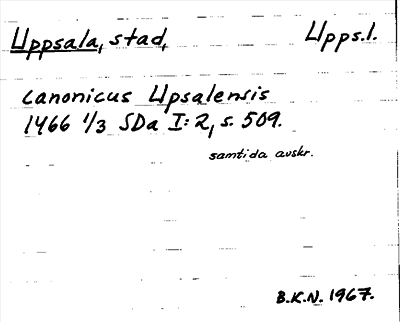 Uppsala, stad, Upps.l.
canonicus Upsalensis
1466 1/3 SDa I: 2, s. 509.
samtida avskr.
B.K.N. 1967.